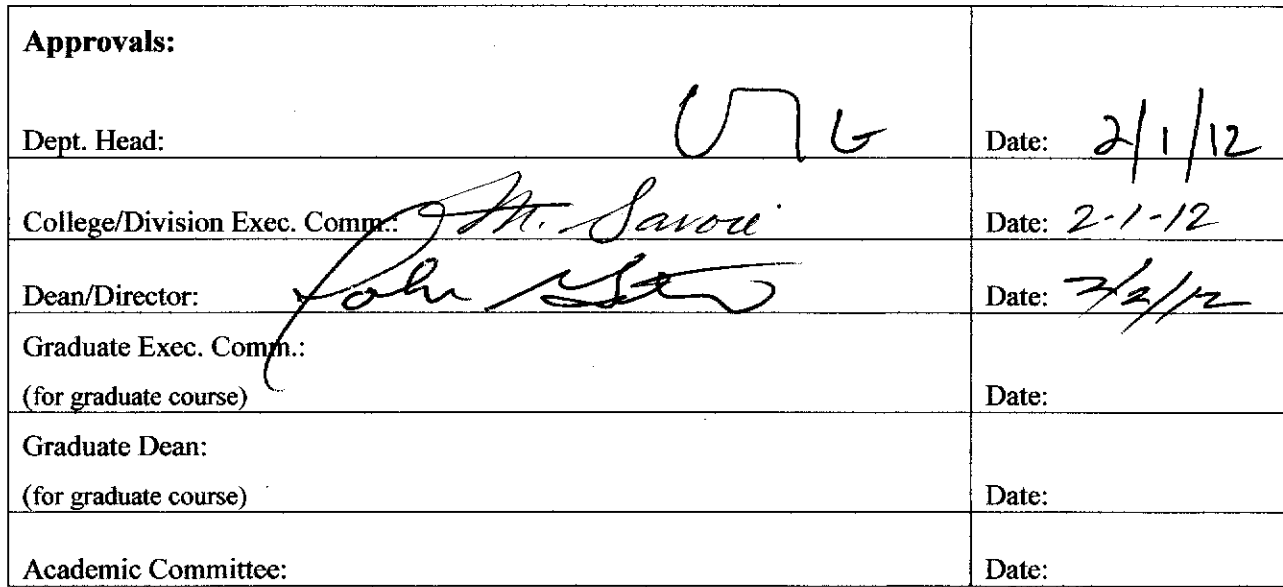 Approvals:
Dept. Head: Date: 2/1/12
College/Division Exec. Comm.: M. Savoie Date: 2-1-12
Dean/Director: John Date:
Graduate Exec. Comm.:
(for graduate course) Date:
Graduate Dean:
(for graduate course) Date:
Academic Committee: Date: